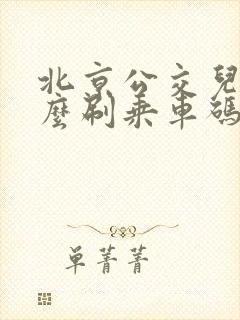 北京公交兒
麼刷乘車碼
單菁菁